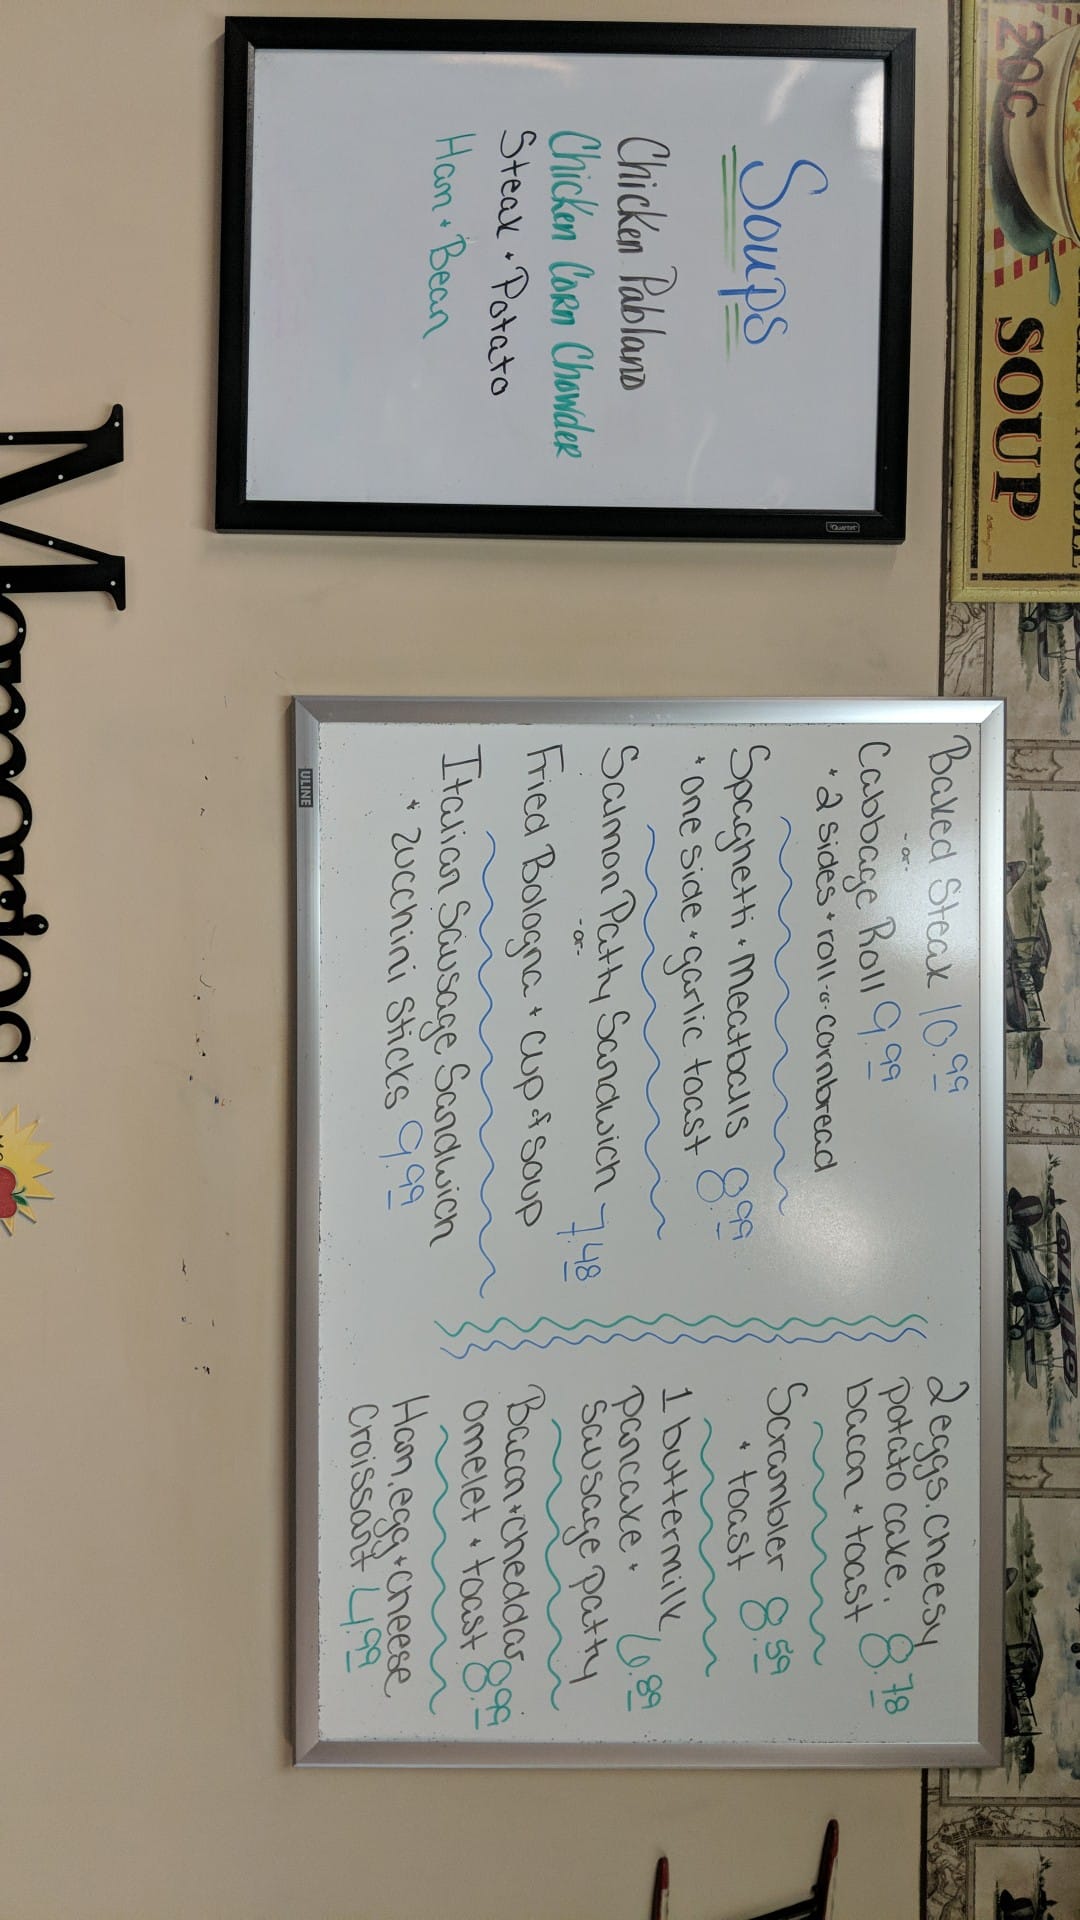 20¢
SOUP
Soups
Chicken Pablano
Chicken Corn Chowder
Steak + Potato
Ham + Bean
Quartet
Baked Steak 10.99
-or-
Cabbage Roll 9.99
+ 2 sides + roll -or- cornbread
Spaghetti + meatballs
+ one side + garlic toast 8.99
Salmon Patty Sandwich
-or-
7.48
Fried Bologna + cup of soup
Italian Sausage Sandwich
+ zucchini sticks 9.99
2 eggs, cheesy
potato cake,
bacon + toast 8.78
Scrambler
+ toast 8.59
1 buttermilk
pancake +
sausage patty 6.89
Bacon + cheddar
omelet + toast 8.99
Ham, egg + cheese
Croissant 4.99
ULINE